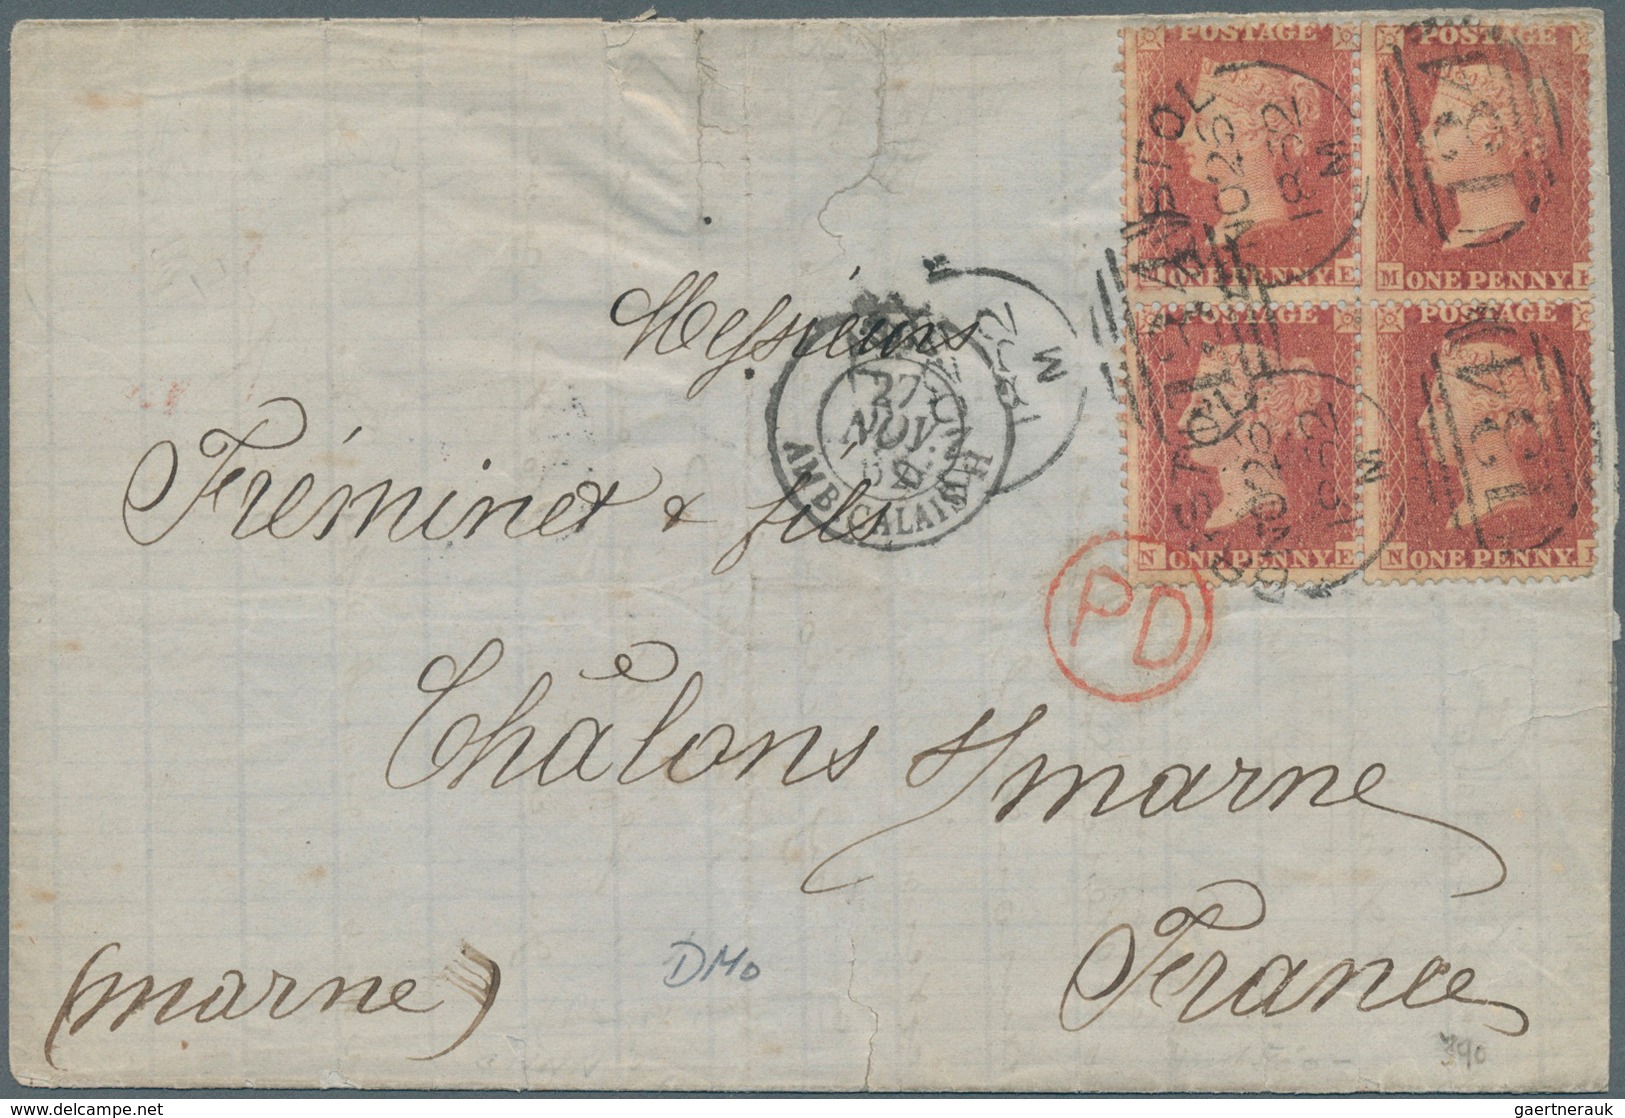 POSTAGE POSTAGE
M ONE PENNY. E M ONE PENNY.
POSTAGE POSTAGE
N ONE PENNY. E N ONE PENNY.
BRISTOL
NO 25
1852
M
134
BRISTOL
NO 25
1852
M
134
1852
M
27
NOV.
AMB. CALAIS
PD
Messieurs
Fréminet & fils
Châlons s/ marne
France
(marne)
DMo
390
gaertnerauk